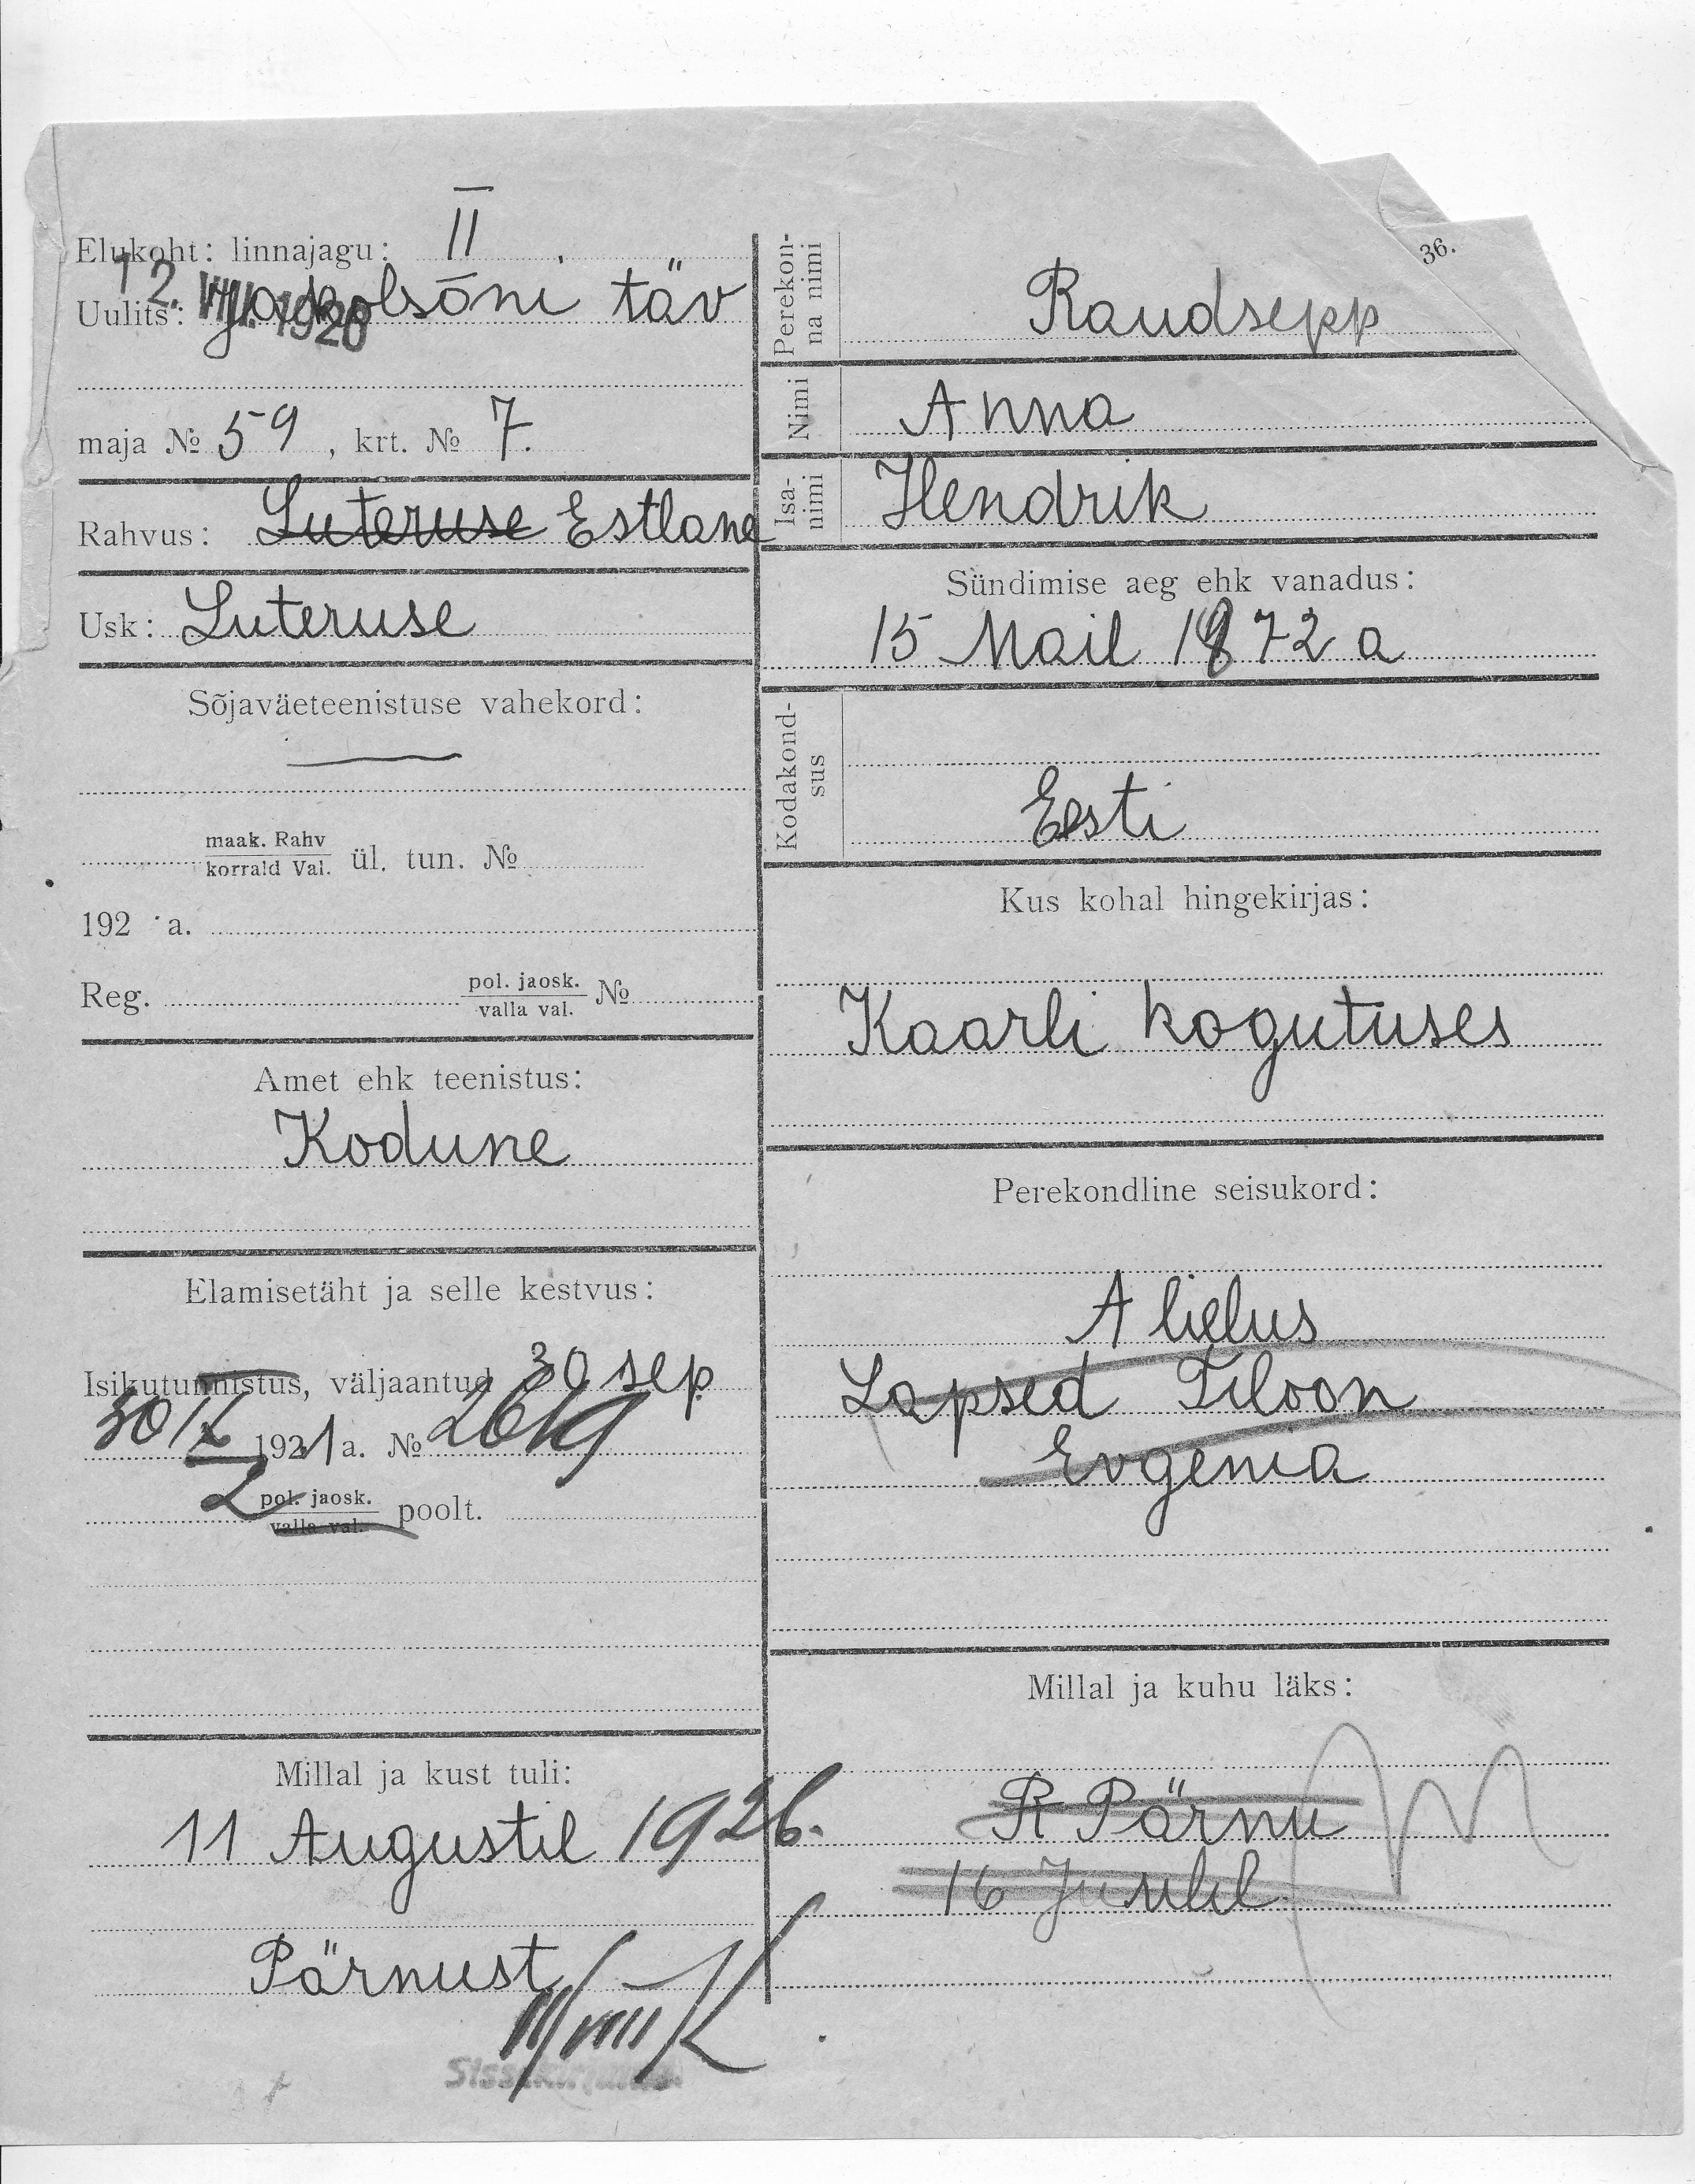 Elukoht: linnajagu: II
12. VIII. 1926
Uulits: Jakobsöni täv
maja № 59, krt. № 7.
Rahvus: Luteruse Estlane
Usk: Luteruse
Sõjaväeteenistuse vahekord:
maak. Rahv
korrald Val. ül. tun. №
192 a.
Reg. pol. jaosk. №
valla val.
Amet ehk teenistus:
Kodune
Elamisetäht ja selle kestvus:
Isikutunnistus, väljaantud 30 sep
30/IX 1921 a. № 2619
2 pol. jaosk. poolt.
valla val.
Millal ja kust tuli:
11 Augustil 1926.
Pärnust
36.
Perekon-
na nimi
Raudsepp
Nimi
Anna
Isa-
nimi
Hendrik
Sündimise aeg ehk vanadus:
15 Mail 1872 a
Kodakond-
sus
Eesti
Kus kohal hingekirjas:
Kaarli kogutuses
Perekondline seisukord:
A lielus
Lapsed Filoon
Evgenia
Millal ja kuhu läks:
R Pärnu
16